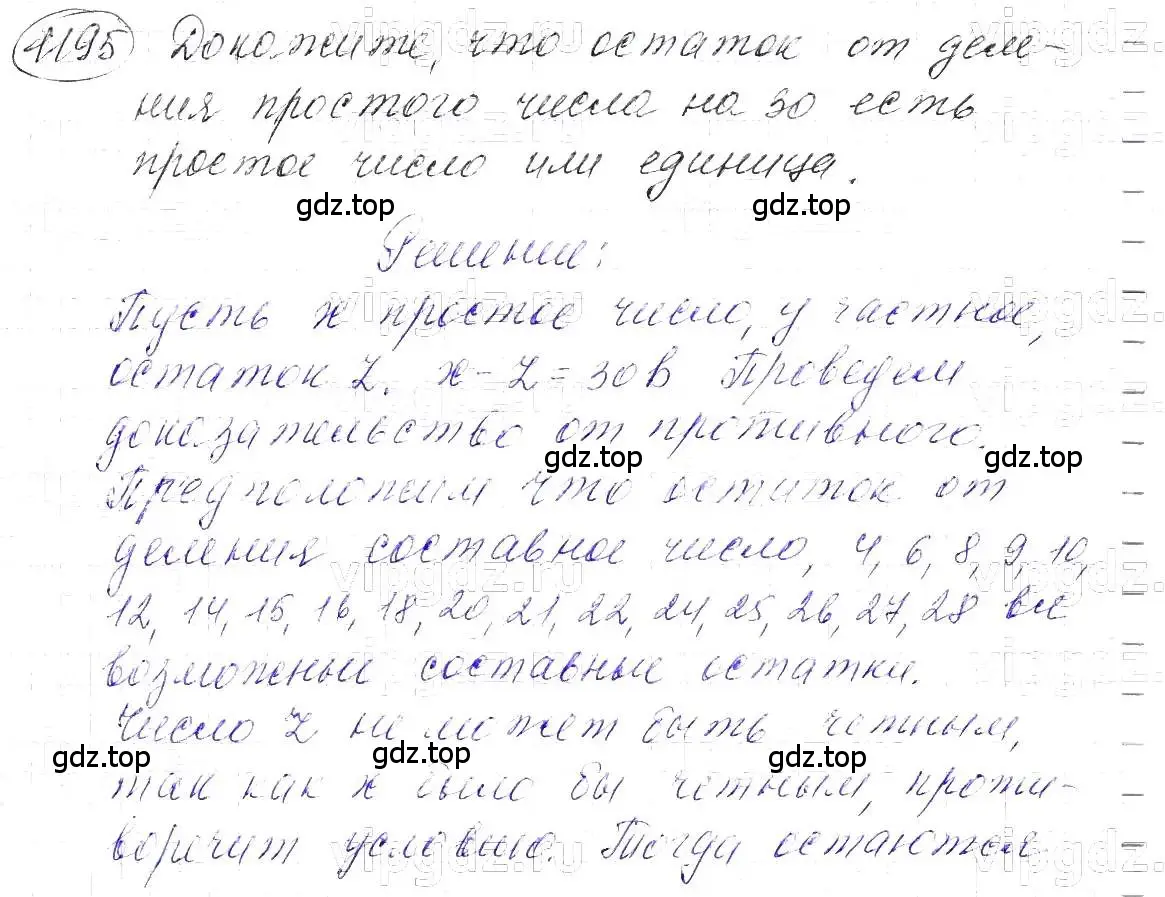 1195 Докажите, что остаток от деле-
ния простого числа на 30 есть
простое число или единица.
gdz.top gdz.top
Решение:
Пусть x простое число, y частное,
остаток Z. x - Z = 30B Проведем
доказательство от противного.
gdz.top gdz.top
Предположим что остаток от
деления составное число, 4, 6, 8, 9, 10,
12, 14, 15, 16, 18, 20, 21, 22, 24, 25, 26, 27, 28 все
возможные составные остатки.
Число Z не может быть четным,
gdz.top gdz.top gdz.top
так как x было бы четным, проти-
воречит условию. Тогда остаются